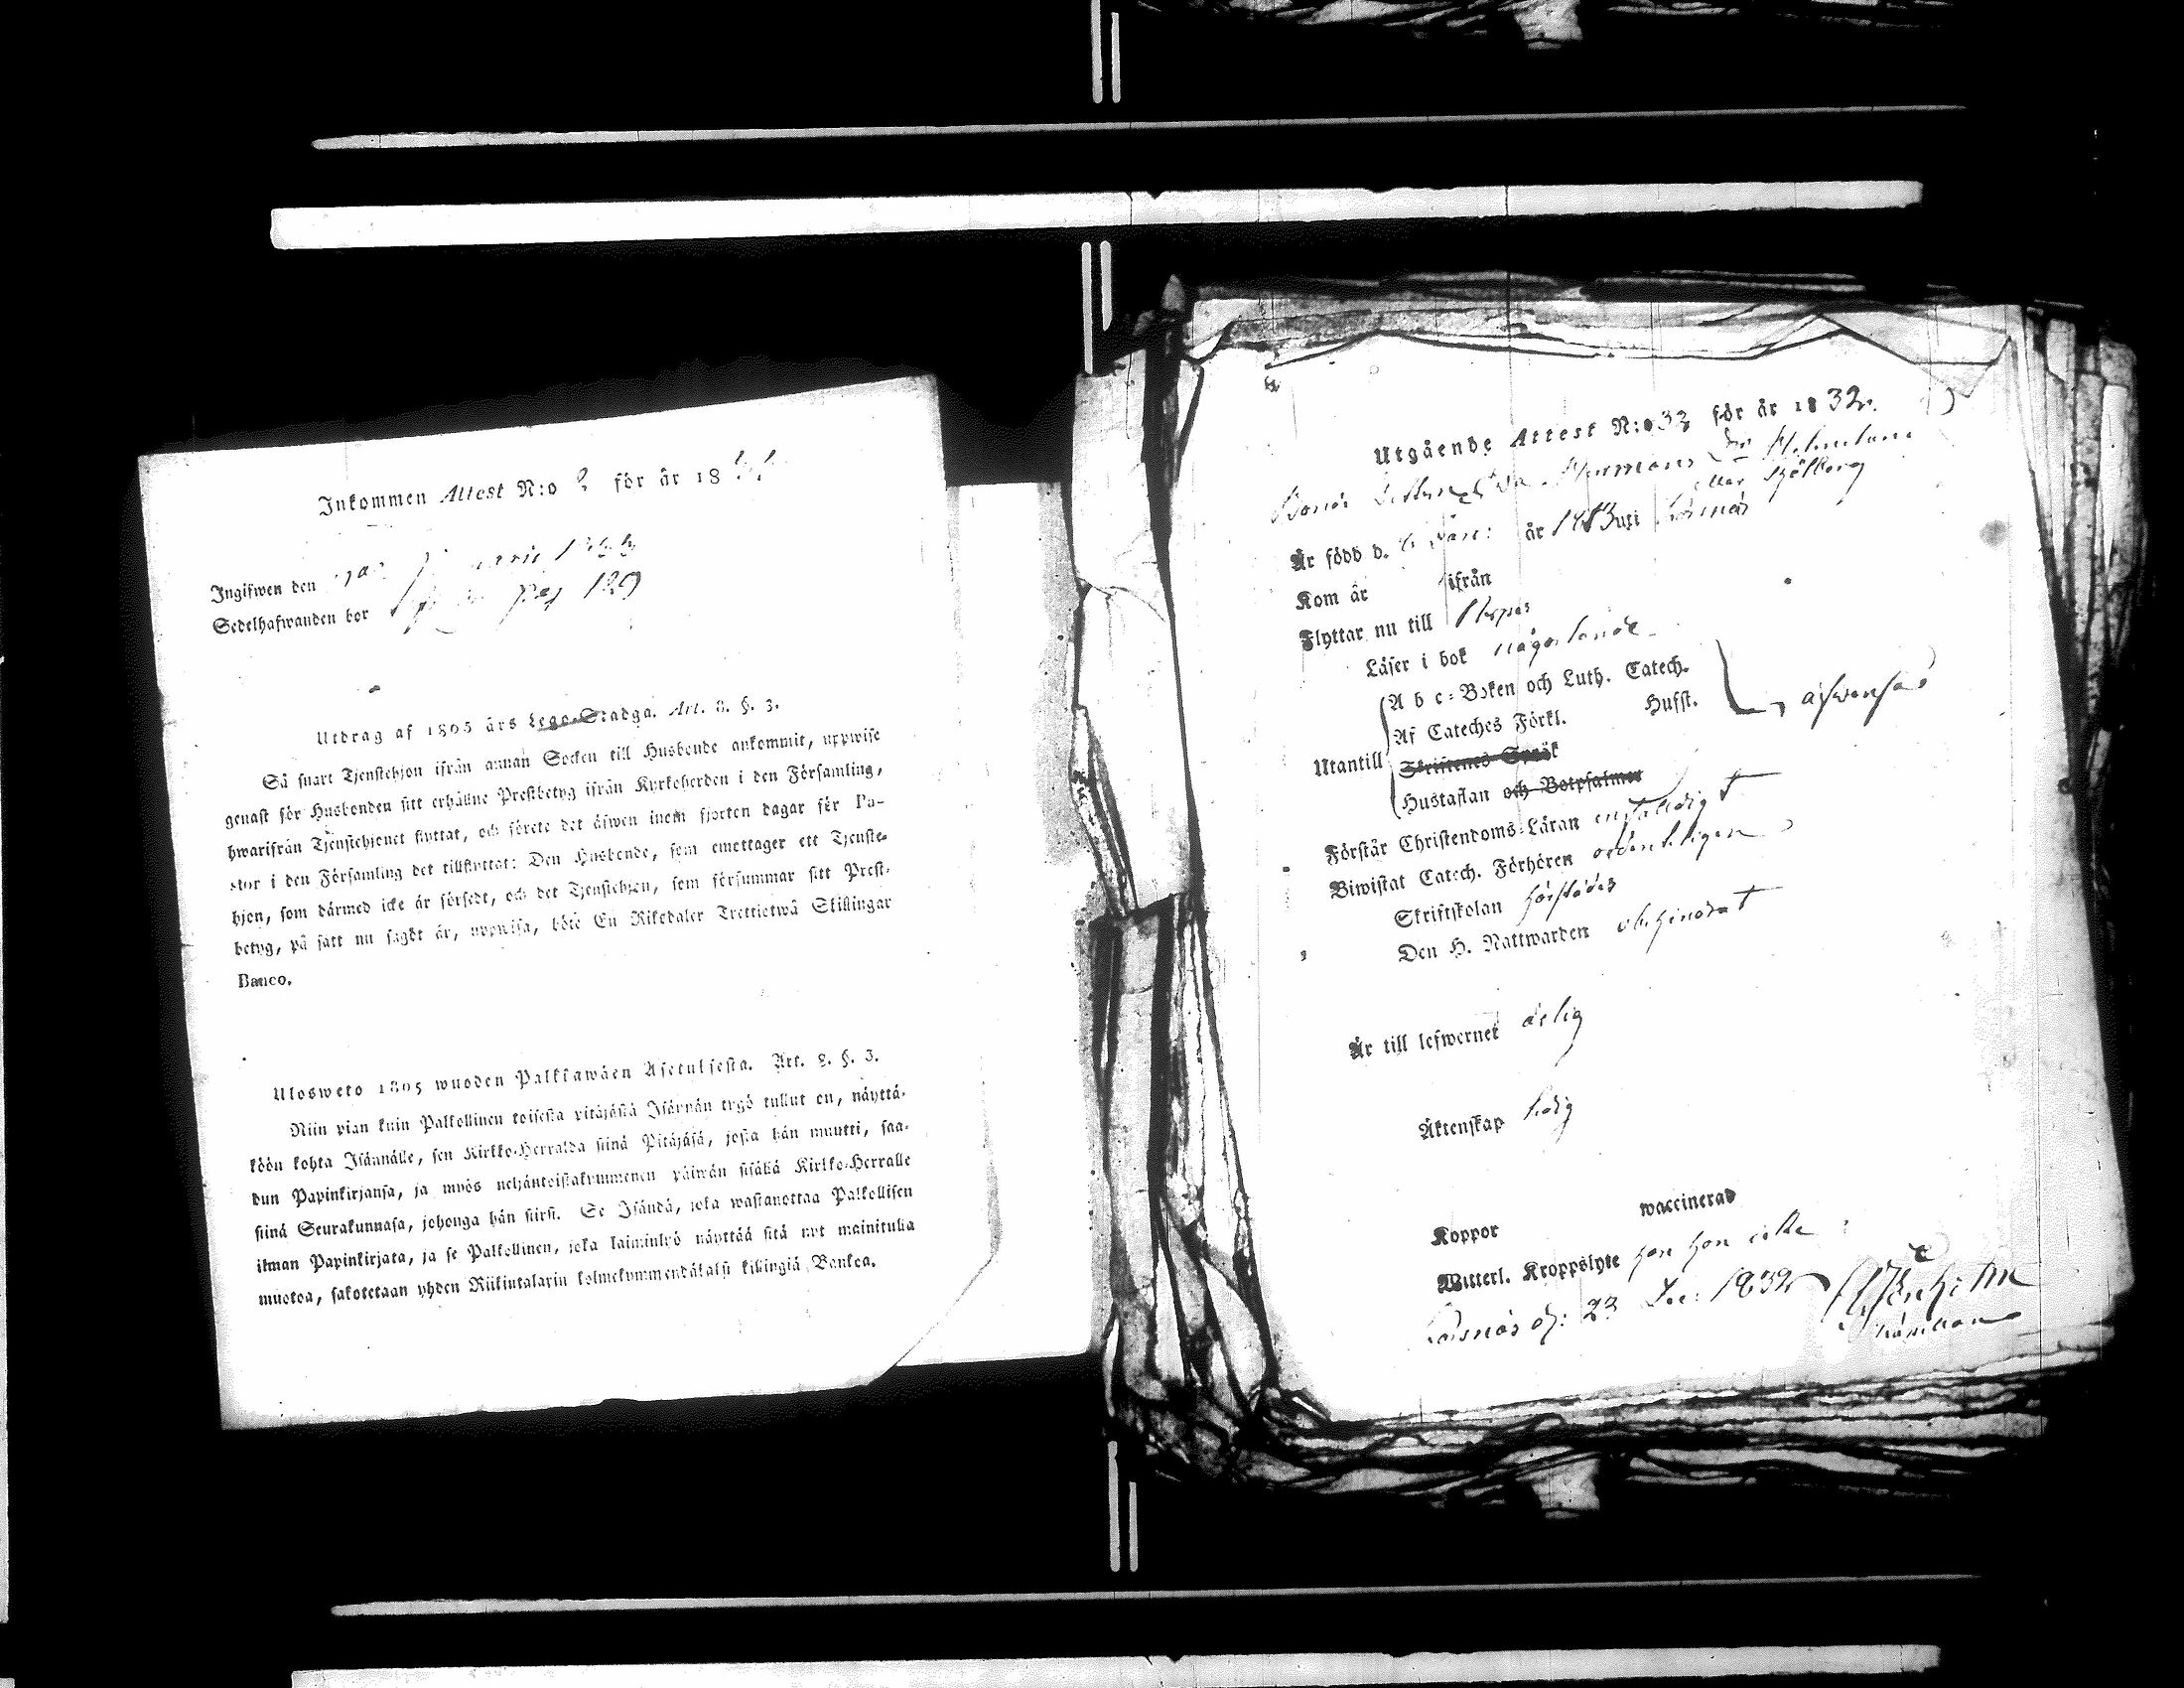 Inkommen Attest N:o 2 för år 18
Ingifwen den
Sedelhafwanden bor pag 129
Utdrag af 1805 års Lego-Stadga. Art. 8. §. 3.
Så snart Tjenstehjon ifrån annan Socken till Husbonde ankommit, uppwise
genast för Husbonden sitt erhållne Prestbetyg ifrån Kyrkoherden i den Församling,
hwarifrån Tjenstehjonet flyttat, och förete det äfwen inom fjorten dagar för Pa-
stor i den Församling det tillflyttat: Den Husbonde, som emottager ett Tjenste-
hjon, som därmed icke är försedt, och det Tjenstehjon, som försummar sitt Prest-
betyg, på sätt nu sagdt är, uppwisa, böte En Riksdaler Trettiotwå Skillingar
Banco.
Ulosweto 1805 wuoden Palkkawäen Asetuksesta. Art. 8. §. 3.
Niin pian kuin Palkollinen toisesta pitäjästä Isännän tygö tullut on, näyttä-
köön kohta Isännälle, sen Kirkko-Herralda siinä Pitäjäsä, josta hän muutti, saa-
dun Papinkirjansa, ja myös neljäntoistakymmenen päiwän sisällä Kirkko-Herralle
siinä Seurakunnasa, johonga hän siirsi. Se Isändä, joka wastanottaa Palkollisen
ilman Papinkirjata, ja se Palkollinen, joka laiminlyö näyttää sitä nyt mainitulla
muotoa, sakotetaan yhden Riikintalarin kolmekymmendäkaksi killingiä Bankoa.
Utgående Attest N:o 33 för år 1832.
Hermans Dr
eller Sjöberg
Är född d. år 1783 uti
Kom år ifrån
Flyttar nu till
Läser i bok någorlunda
Utantill
A b c-Boken och Luth. Catech.
Af Cateches Förkl. Husst. äfwenså
Skriftenes Språk
Hustaflan och Botpsalmer
Förstår Christendoms-Läran enfaldigt
Biwistat Catech. Förhören ordenteligen
Skriftskolan härstädes
Den H. Nattwarden ohindrat
Är till lefwernet ärlig
Äktenskap ledig
Koppor waccinerad
Witterl. Kroppslyte har hon icke
d: 23 Dec: 1832